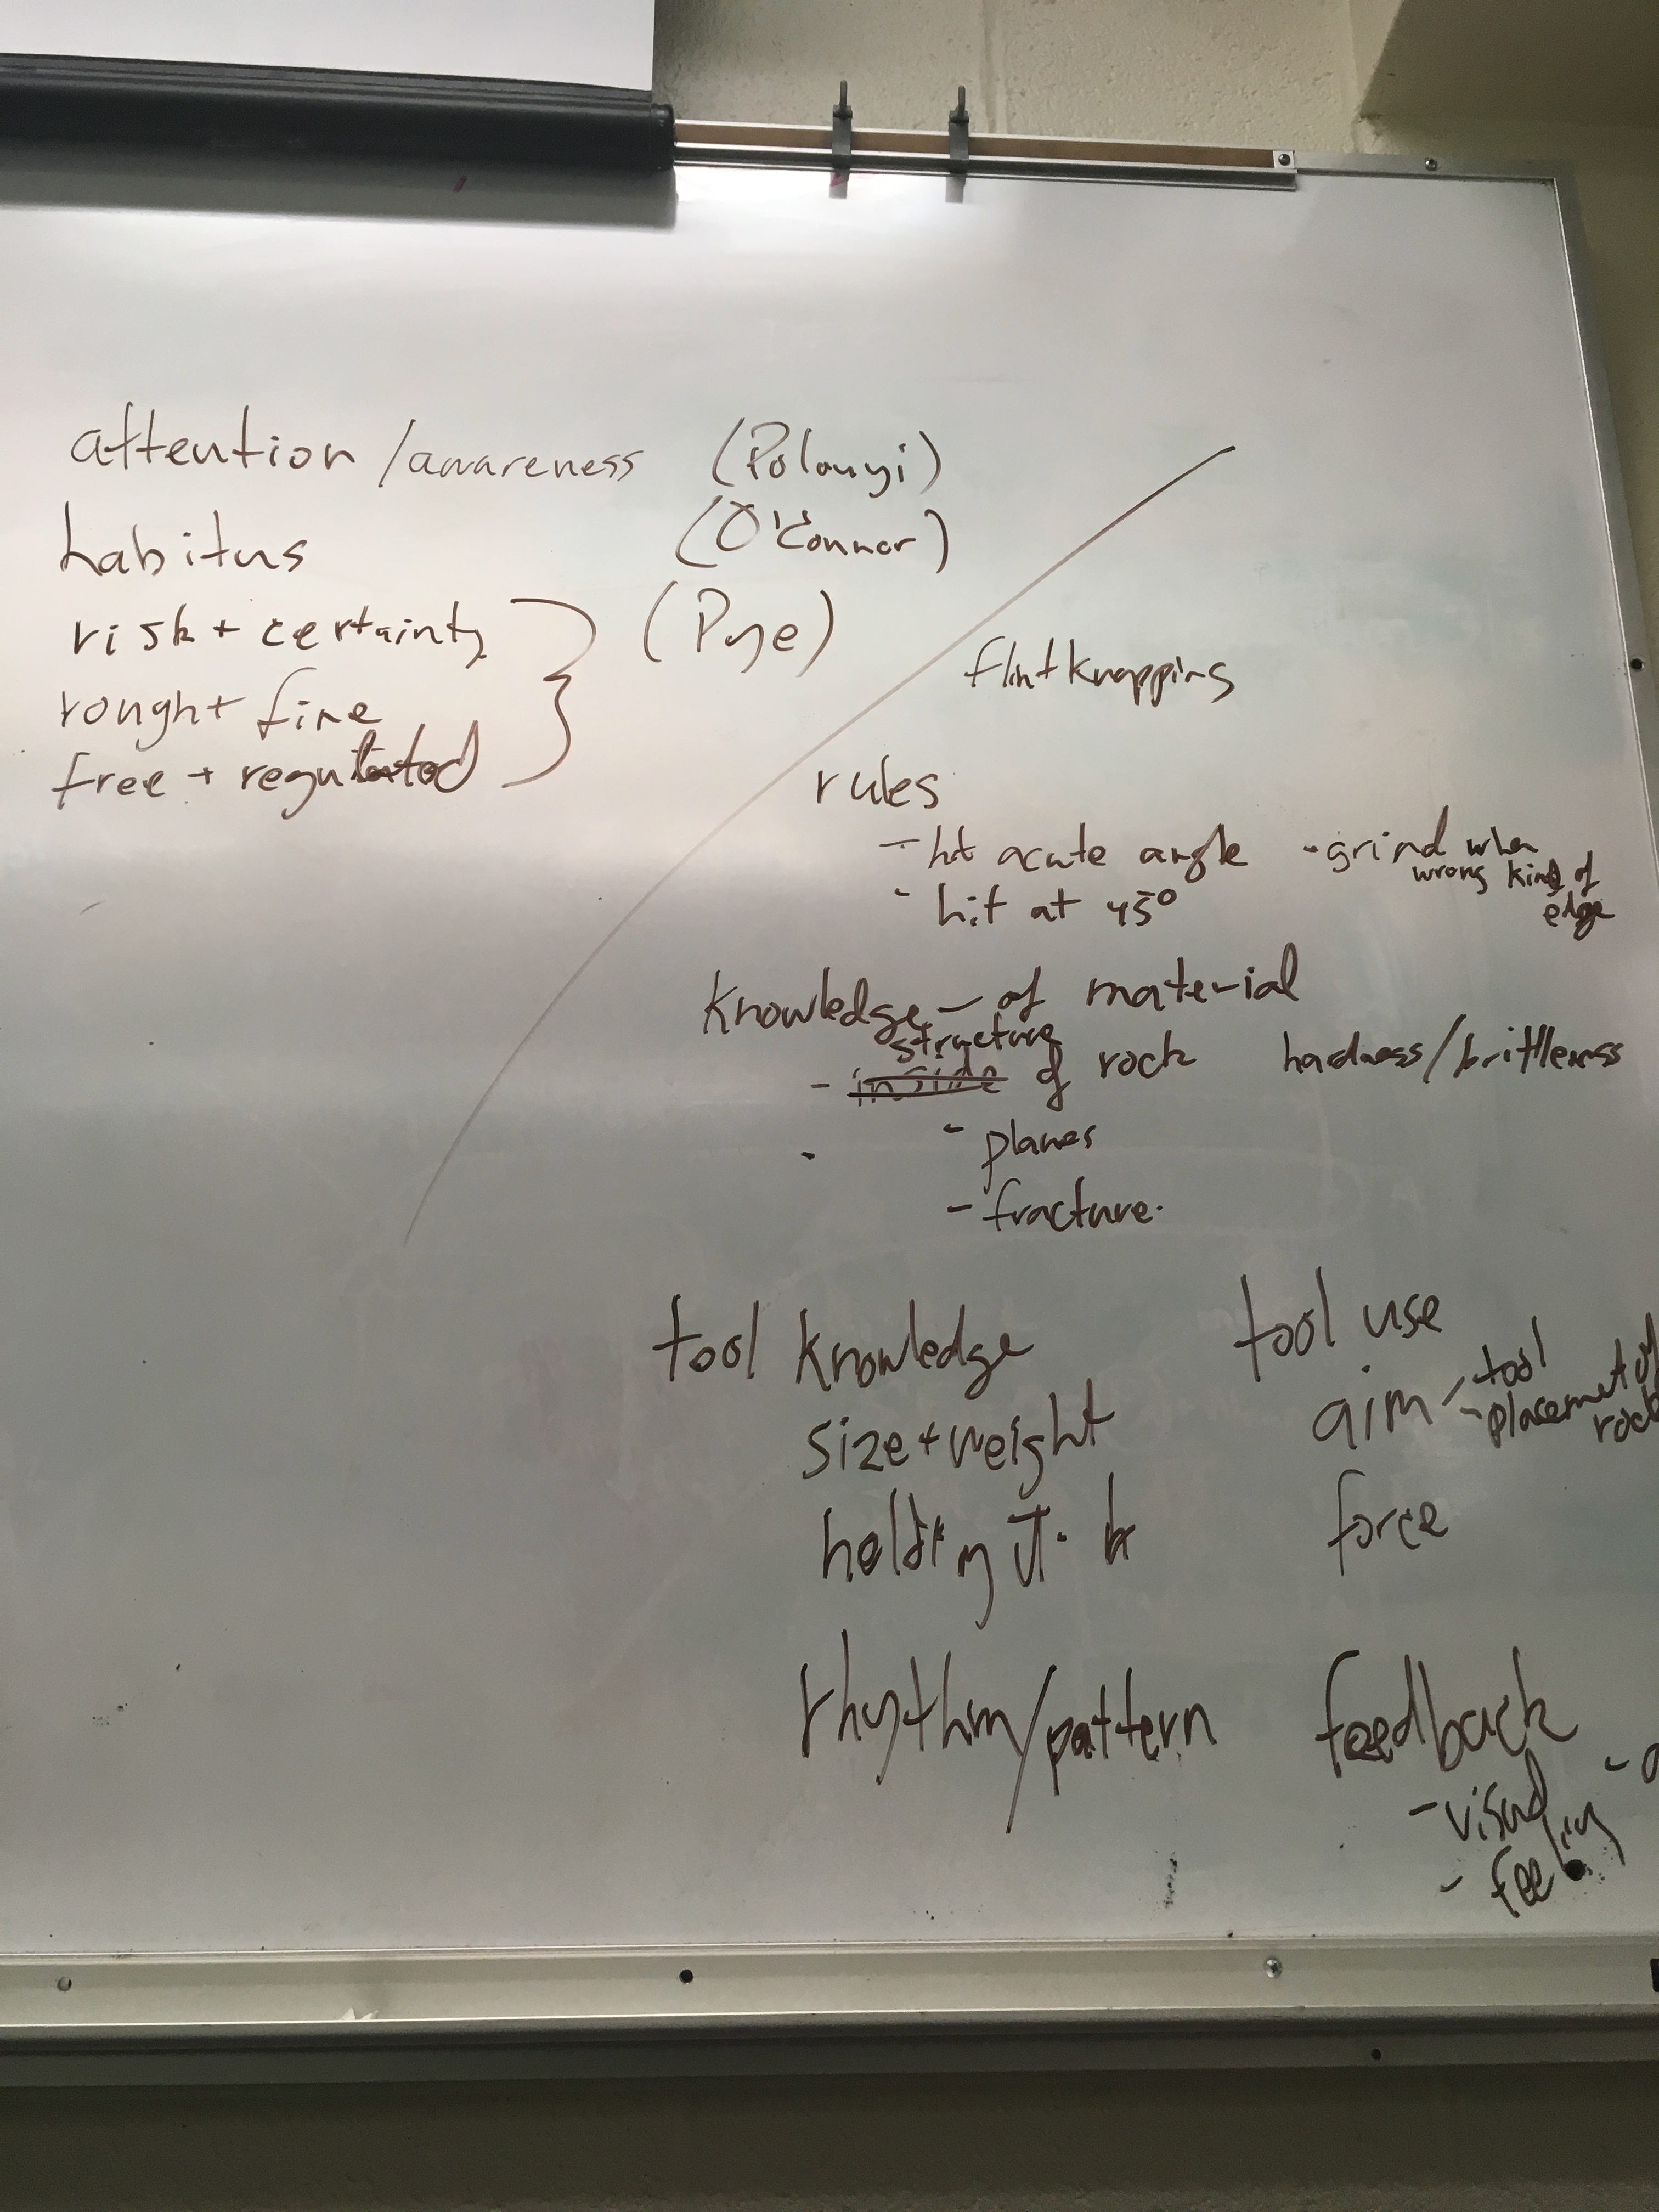 attention /awareness (Polanyi)
habitus (O'Connor)
risk + certainty (Pye)
rough + fine
free + regulated
flintknapping
rules
- hit acute angle - grind when
wrong kind of
edge
- hit at 45°
Knowledge - of material
structure
- inside of rock hardness/brittleness
- planes
-
- fracture.
tool Knowledge tool use
aim - tool
- placement of
rock
size + weight
holding it. force
rhythm/pattern feedback
- visual
- feeling